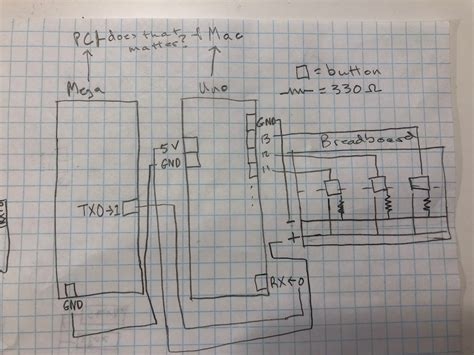 PC←does that
matter?→Mac
Mega
Uno
□ = button
= 330Ω
GND
13
12
11
5V
GND
Breadboard
TX0→1
-
+
RX←0
GND